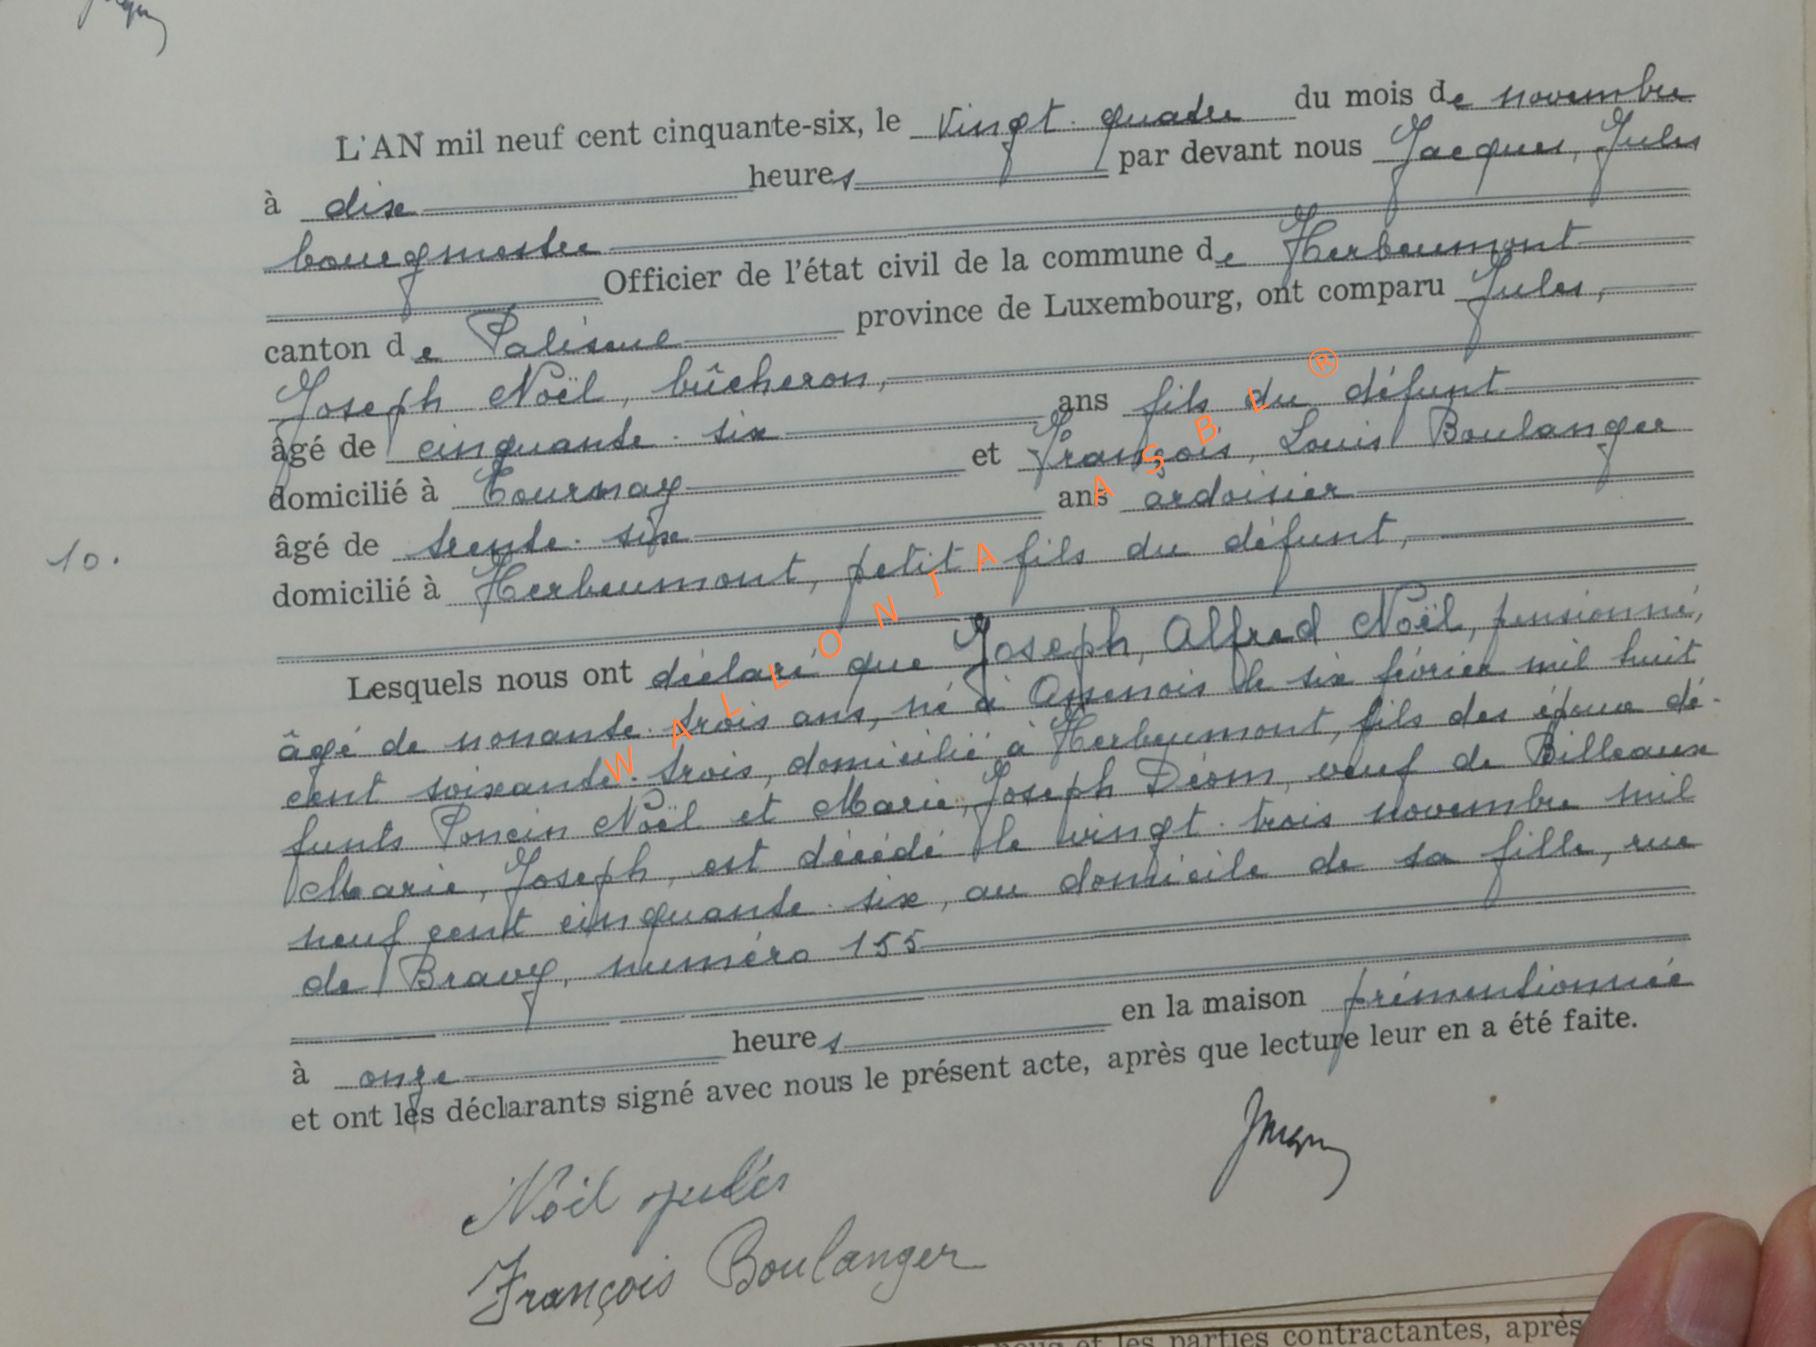 L'AN mil neuf cent cinquante-six, le vingt-quatre du mois de novembre
à dix heures par devant nous Jacques, Jules
bourgmestre
Officier de l'état civil de la commune de Herbeumont
canton de Paliseul province de Luxembourg, ont comparu Jules,
Joseph Noël, bûcheron,
âgé de cinquante-six ans fils du défunt
domicilié à Tournay et François, Louis Boulanger
âgé de trente-six ans ardoisier
10.
domicilié à Herbeumont, petit fils du défunt,
Lesquels nous ont déclaré que Joseph, Alfred Noël, pensionné,
âgé de nonante-trois ans, né à Assenois le six février mil huit
cent soixante-trois, domicilié à Herbeumont, fils des époux dé-
funts Poncin Noël et Marie, Joseph Déom, veuf de Billeaux
Marie, Joseph, est décédé le vingt-trois novembre mil
neuf cent cinquante-six, au domicile de sa fille, rue
de Bravy, numéro 155
en la maison prémentionnée
à onze heures
et ont les déclarants signé avec nous le présent acte, après que lecture leur en a été faite.
Noël Jules
François Boulanger
WALLONIA ASBL ®
nous et les parties contractantes, après